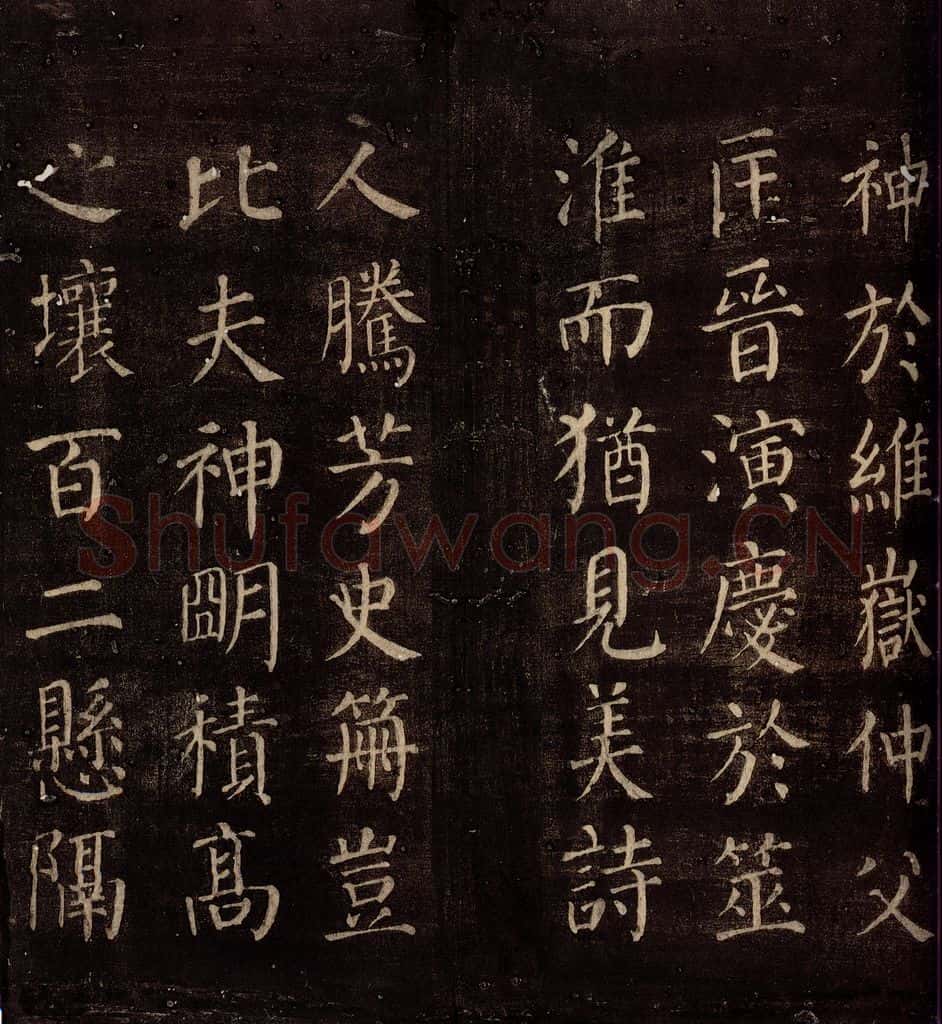 神於維嶽仲父
匡晉演慶於筮
淮而猶見美詩
人騰芳史笧豈
比夫神朙積髙
之壤百二懸隔
Shufawang.CN